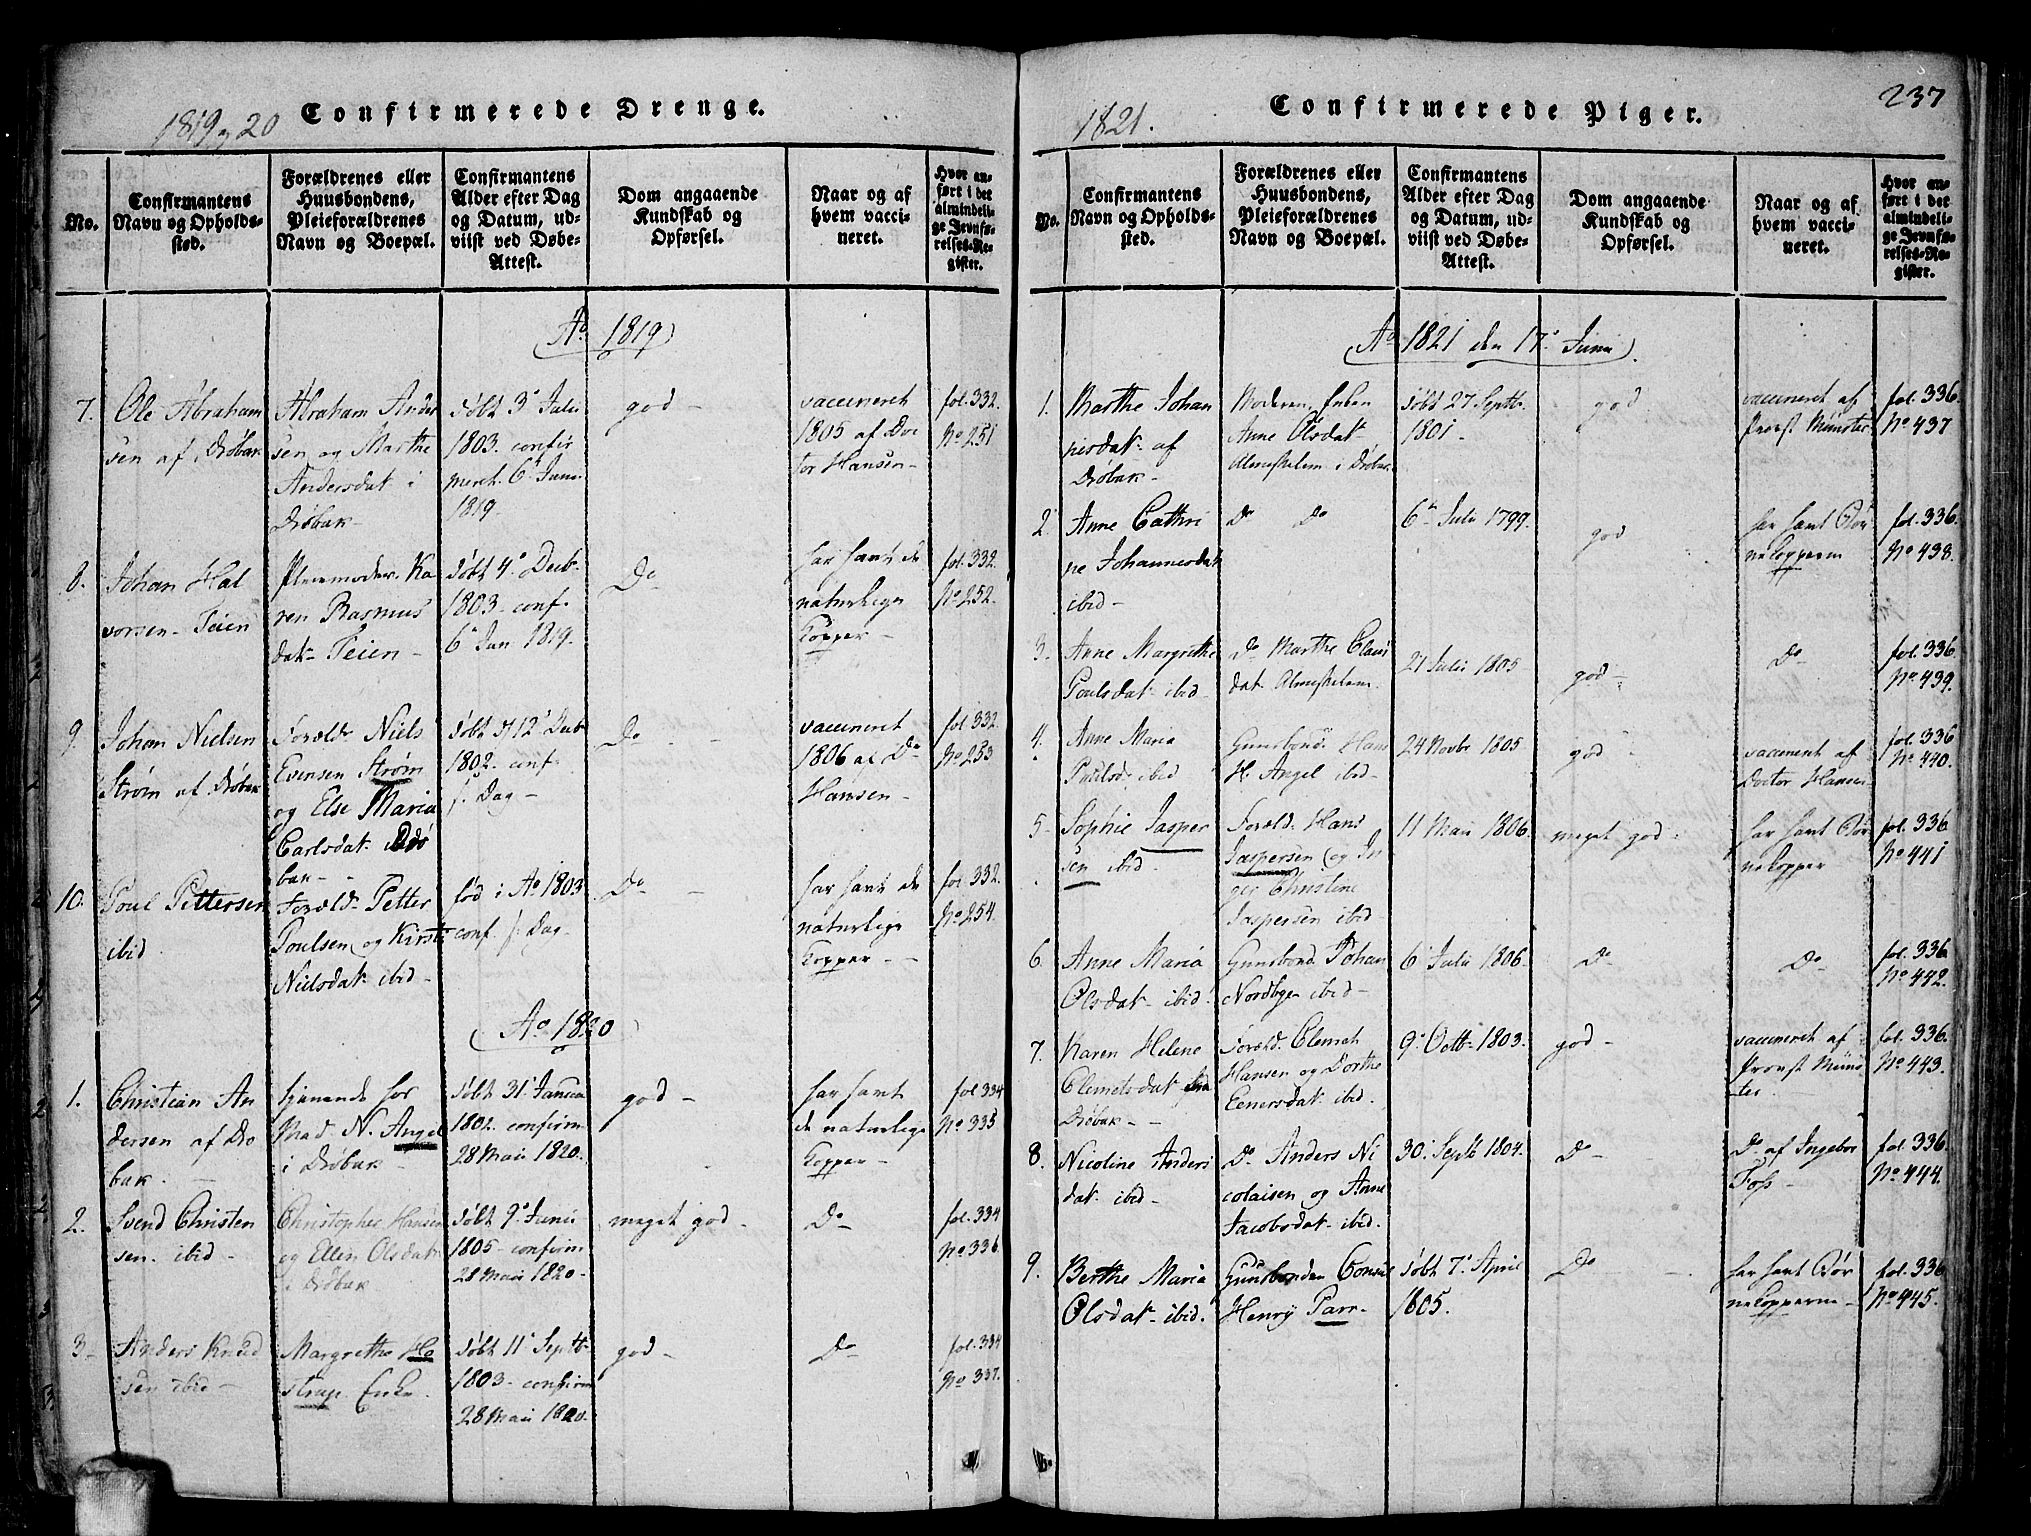 1819 og 20
Confirmerede Drenge.
No.
Confirmantens
Navn og Opholds-
sted.
Forældrenes eller
Huusbondens,
Pleieforældrenes
Navn og Boepæl.
Confirmantens
Alder efter Dag
og Datum, ud-
viist ved Døbe-
Attest.
Dom angaaende
Kundskab og
Opførsel.
Naar og af
hvem vacci-
neret.
Hvor an-
ført i det
almindeli-
ge Jevnfø-
relses-Re-
gister.
Ao 1819
7.
Ole Abraham
sen af Drøbak
Abraham Ander
sen og Marthe
Andersdat i
Drøbak-
døbt 3 Julii
1803. confir
meret 6 Juni
1819.
god -
vaccineret
1805 af Doc
tor Hansen-
fol. 332.
No 251
8.
Johan Hal
vorsen- Teien
Pleiemoder. Ka
ren Rasmus
dat- Teien-
døbt 4 Decb.
1803. conf.
6 Jun 1819.
Do
har havt de
naturlige
Kopper -
fol. 332.
No 252.
9.
Johan Nielsen
Strøm af Drøbak
Foræld. Niels
Evensen Strøm
og Else Maria
Carlsdat i Drø
bak-
døbt d 12 Decb
1802. conf.
s. Dag-
Do
vaccineret
1806 af Do
Hansen-
fol. 332
No 253
10.
Poul Pettersen
ibid
Foræld. Petter
Poulsen og Kirsti
Nielsdat ibid-
fød i Ao 1803
conf. s. Dag-
Do
har havt de
naturlige
Kopper -
fol. 332.
No 254.
Ao 1820
1.
Christian An
dersen af Drø
bak. -
tjenende hos
Mad N. Angel
i Drøbak-
døbt 31 Janua
1802. confirm
28 Maii 1820.
god -
har havt
de naturlige
Kopper-
fol 334
No 335
2.
Svend Christen
sen. ibid -
Christopher Hansen
og Ellen Olsdat
i Drøbak
døbt 9 Junii
1805- confirm
28 Maii 1820-
meget god -
Do
fol. 334
No 336
3-
Anders Knud
sen ibid-
Margrethe Ho
strup Enke.
døbt 11 Septb.
1803- confirm
28 Maii 1820-
god -
Do
fol. 334
No 337.
1821.
Confirmerede Piger.
237
No.
Confirmantens
Navn og Opholds-
sted.
Forældrenes eller
Huusbondens,
Pleieforældrenes
Navn og Boepæl.
Confirmantens
Alder efter Dag
og Datum, ud-
viist ved Døbe-
Attest.
Dom angaaende
Kundskab og
Opførsel.
Naar og af
hvem vacci-
neret.
Hvor an-
ført i det
almindeli-
ge Jevnfø-
relses-Re-
gister.
Ao 1821 den 17 Juni
1.
Marthe Johan
nesdat- af
Drøbak-
Moderen, Enken
Anne Olsdat-
Almeskelem i Drøbak
døbt 27 Septb.
1801-
god
vaccineret af
Provst Münster
fol. 336
No 437
2
Anne Cathri
ne Johannesdat
ibid-
Do Do
6 Julii 1799.
god
har havt Bør
nekopperne
fol. 336.
No 438.
3.
Anne Margrethe
Poulsdat ibid-
Do Marthe Claus
dat Almeskelem.
21 Julii 1805
god -
Do
fol. 336
No 439.
4.
Anne Maria
Poulsd. ibid
Huusbond. Hans
H. Angel ibid-
24 Novbr 1805
god
vaccineret af
Doctor Hansen
fol. 336
No 440.
5-
Sophie Jasper
sen ibid.
Foræld. Hans
Jaspersen og In
ger Christine
Jaspersen ibid-
11 Maii 1806.
meget god.
har havt Bør
nekopper
fol. 336.
No 441
6.
Anne Maria
Olsdat- ibid
Huusbond. Johan
Nordbye ibid-
6 Julii 1806.
Do
Do
fol. 336
No 442.
7.
Karen Helene
Clemetsdat fra
Drøbak- -
Foræld. Clemet
Hansen og Dorthe
Eenersdat ibid.
9 Octb. 1803.
god -
vaccineret af
Provst Müns
ter. -
fol. 336.
No 443.
8.
Nicoline Anders
dat. ibid-
Do Anders Ni
colaisen og Anne
Jacobsdat- ibid.
30 Septb 1804.
Do -
Do af Ingebor
Foss-
fol. 336.
No 444.
9.
Berthe Maria
Olsdat- ibid.
Huusbonden Consul
Henry Parr-
døbt 7 April
1805.
Do
har havt Bør
nekopperne-
fol. 336
No 445.